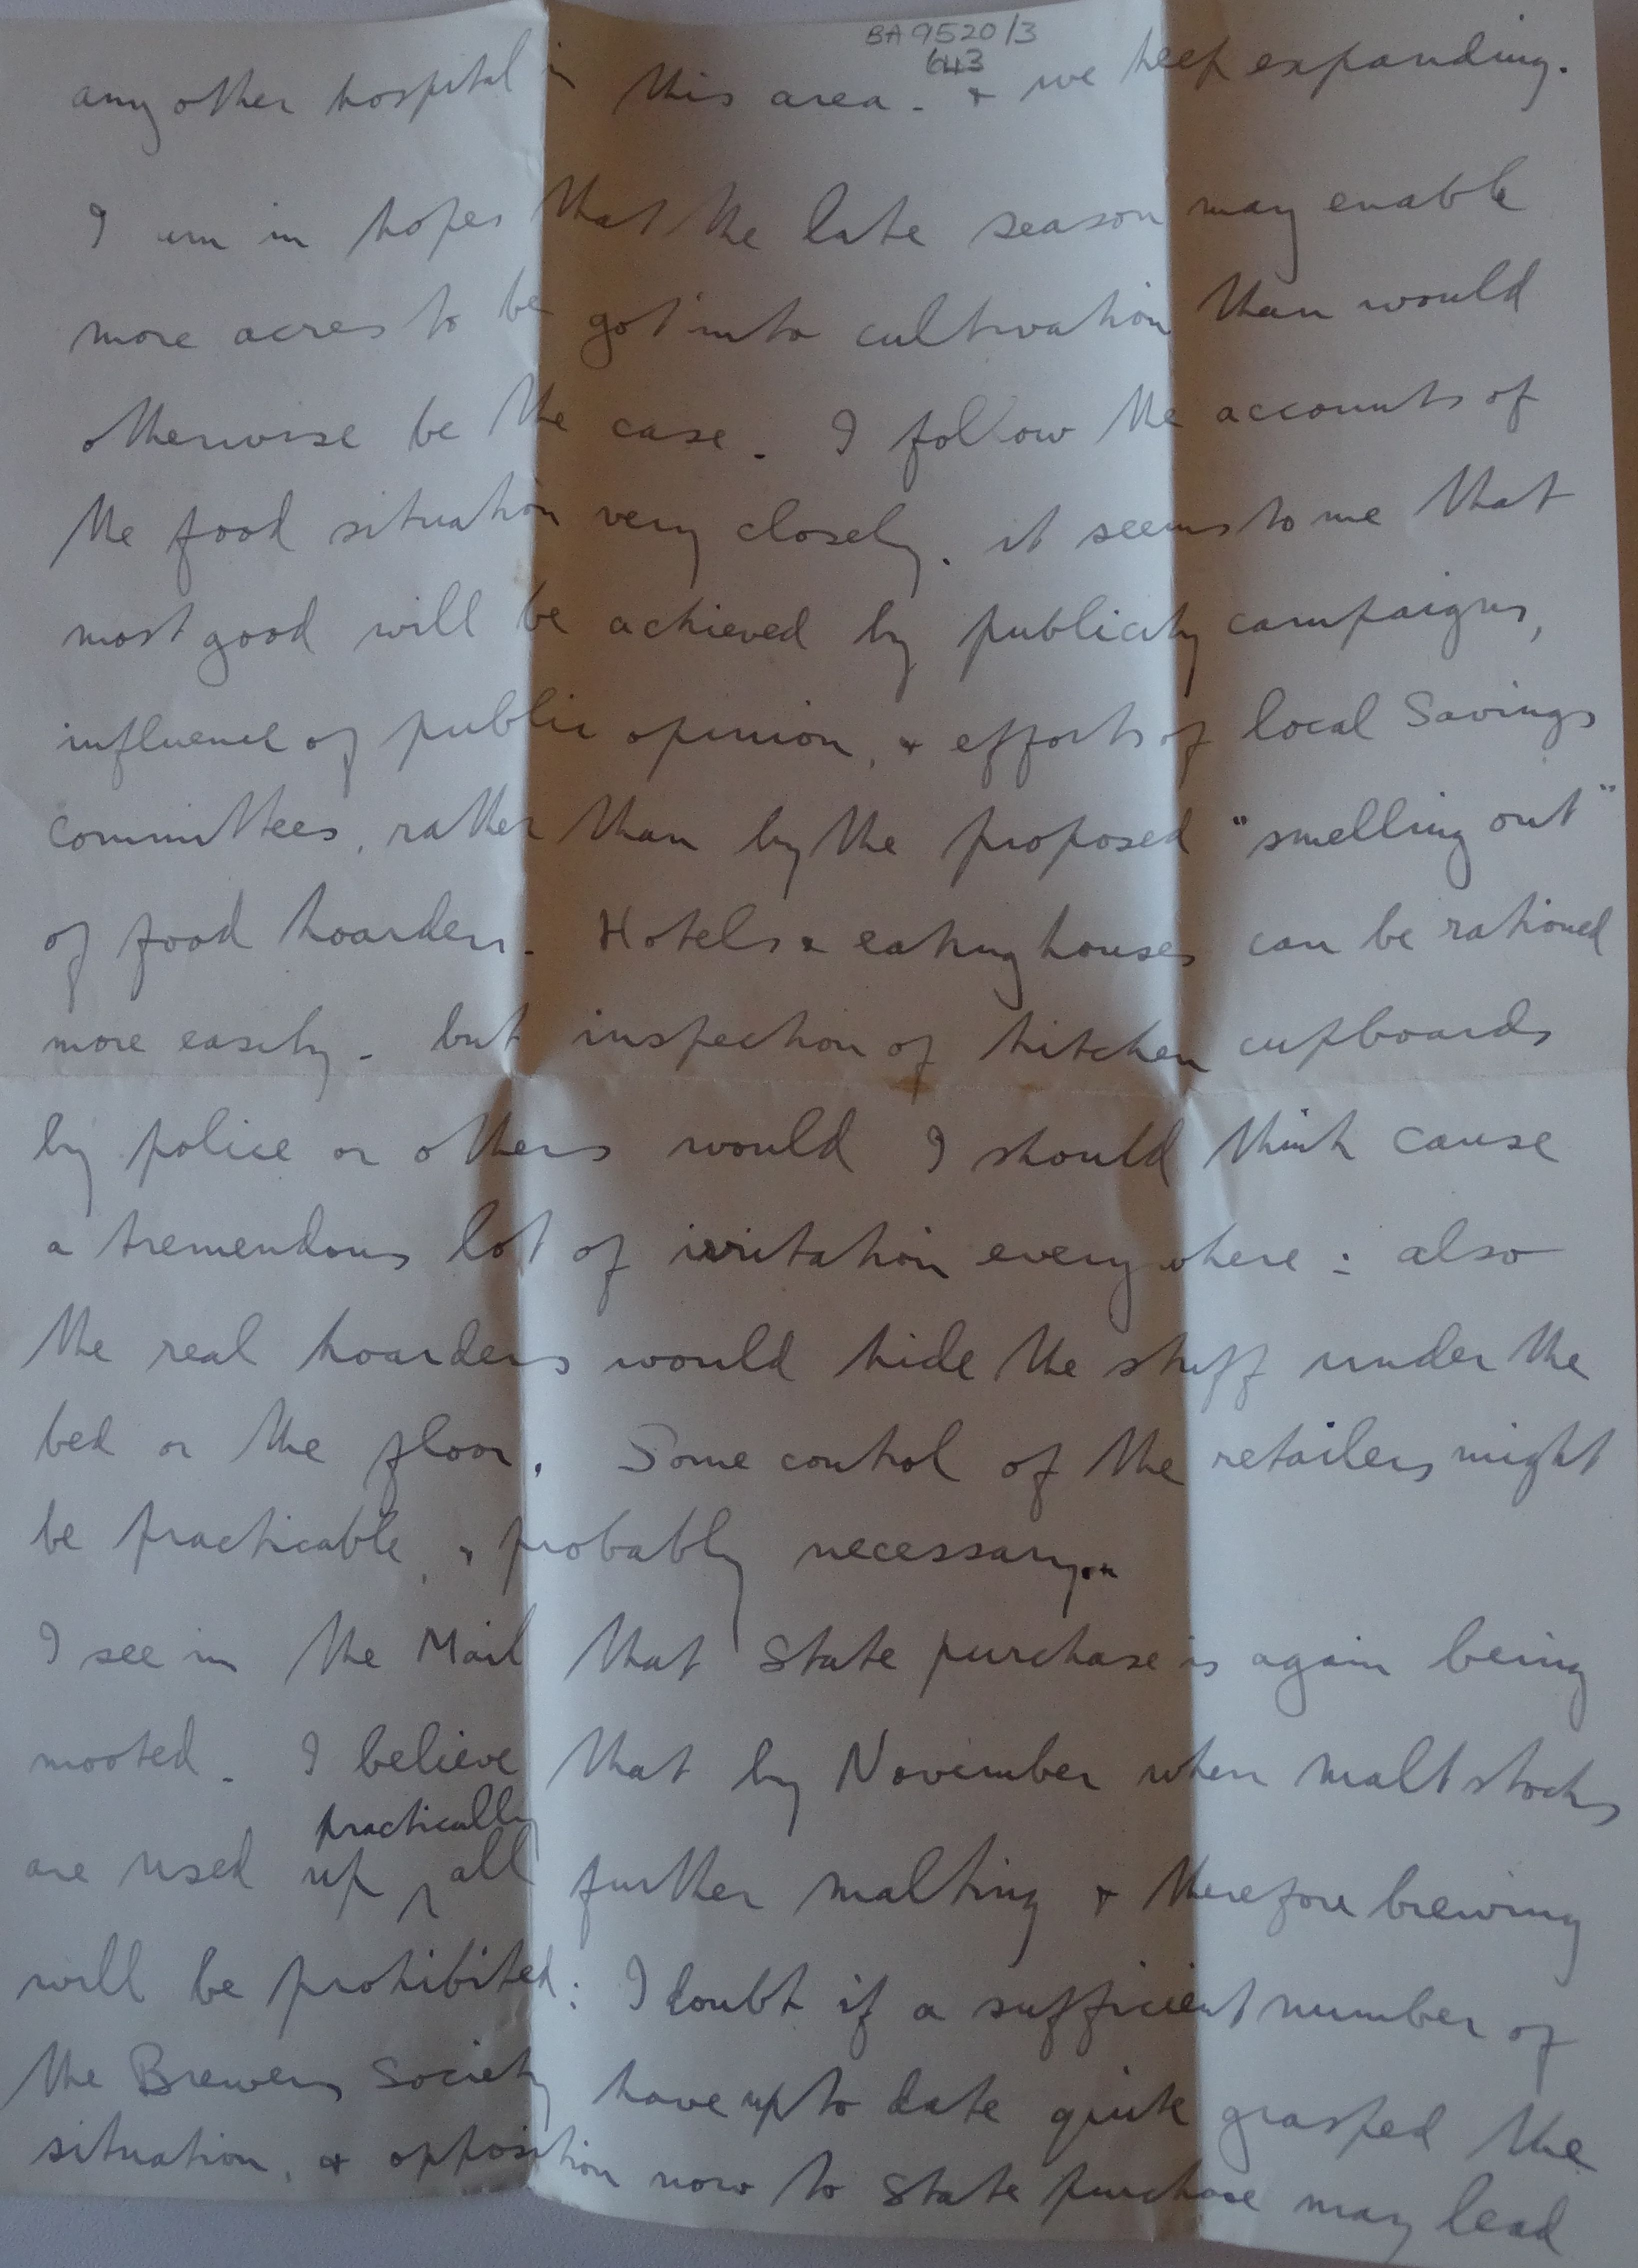 BA 9520/3
643
any other hospital in this area - & we keep expanding.
I am in hopes that the late season may enable
more acres to be got into cultivation than would
otherwise be the case. I follow the accounts of
the food situation very closely. it seems to me that
most good will be achieved by publicity campaigns,
influence of public opinion, & efforts of local Savings
committees, rather than by the proposed "smelling out"
of food hoarders. Hotels & eating houses can be rationed
more easily - but inspection of kitchen cupboards
by police or others would I should think cause
a tremendous lot of irritation everywhere : also
the real hoarders would hide the stuff under the
bed or the floor. Some control of the retailers might
be practicable, & probably necessary..
I see in the Mail that State purchase is again being
mooted. I believe that by November when malt stocks
practically
are used up all further malting & therefore brewing
will be prohibited: I doubt if a sufficient number of
the Brewers Society have up to date quite grasped the
situation, & opposition now to State purchase may lead